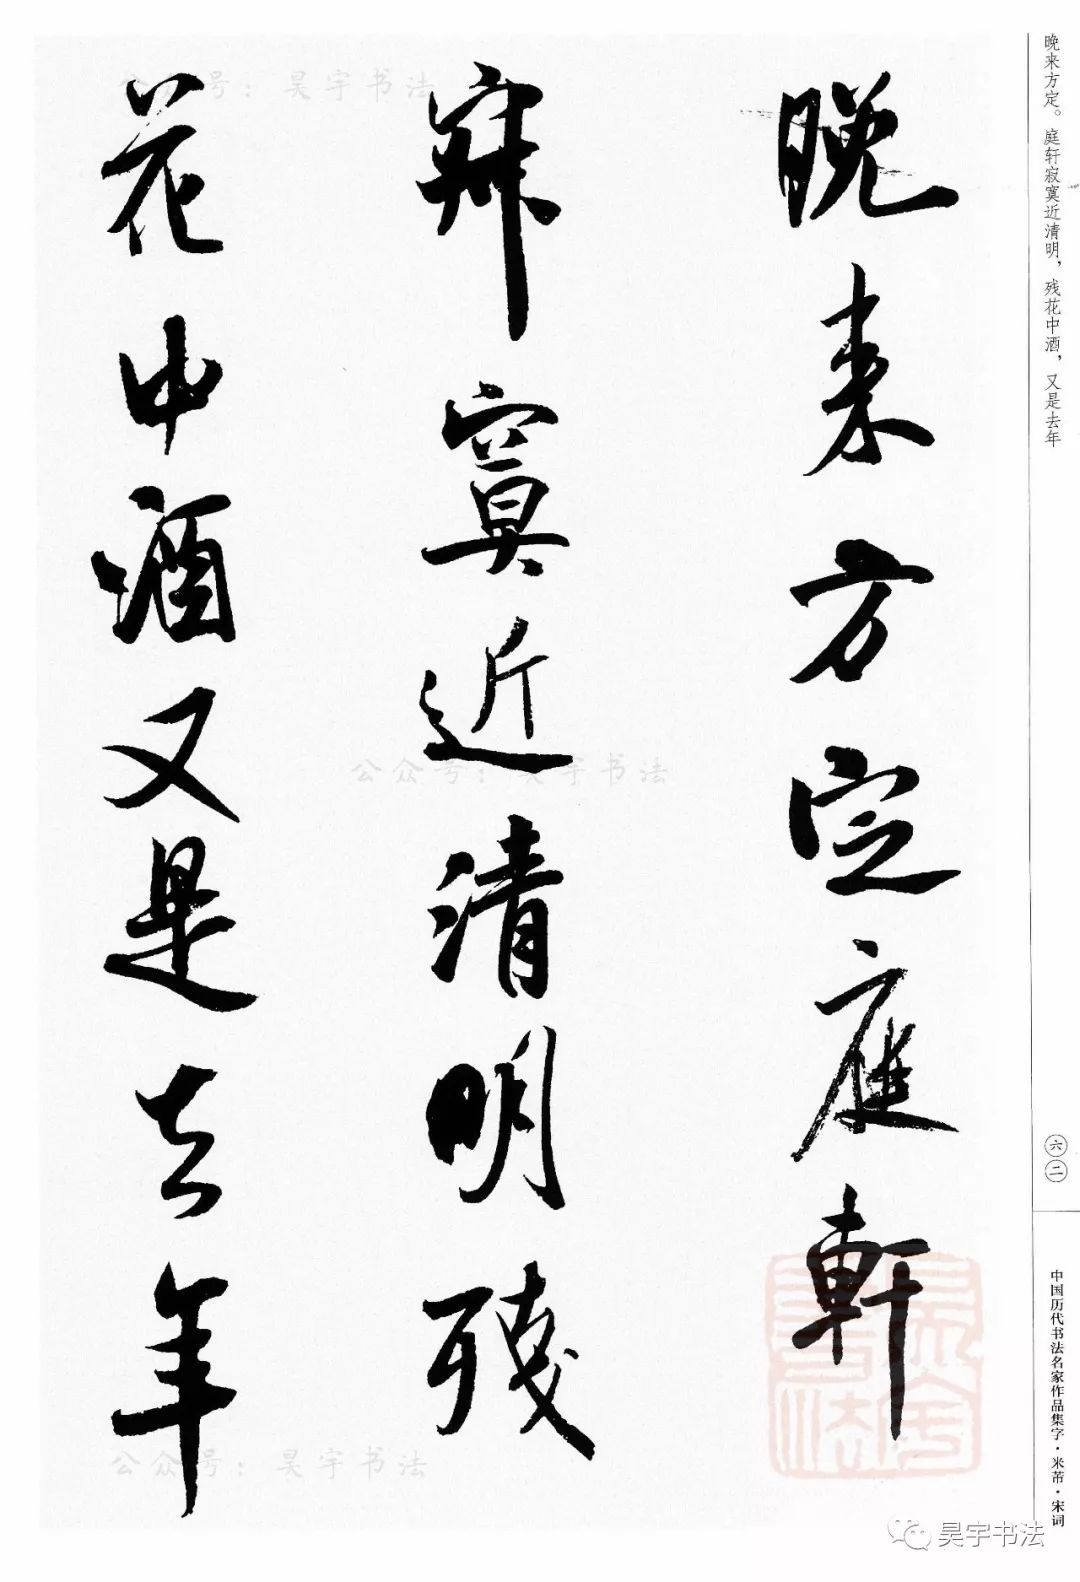 晚来方定。庭轩寂寞近清明，残花中酒，又是去年
六二
中国历代书法名家作品集字·米芾·宋词
晚来方定庭軒
寂寞近清明残
花中酒又是去年
公众号：昊宇书法
公众号：昊宇书法
公众号：昊宇书法
昊宇书法
昊宇书法